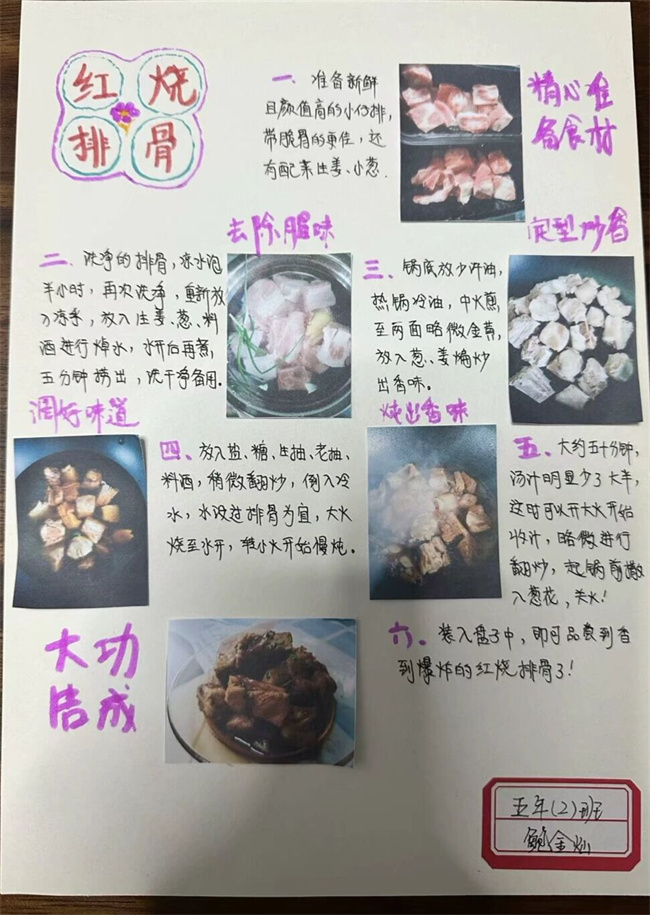 红烧
排骨
一、准备新鲜
且颜值高的小仔排,
带脆骨的更佳,还
有配菜生姜、小葱.
精心准
备食材
去除腥味
二、洗净的排骨,凉水泡
半小时,再次洗净,重新放
入凉水,放入生姜、葱、料
酒进行焯水,水开后再煮,
五分钟捞出,洗干净备用.
定型炒香
三、锅底放少许油,
热锅冷油,中火煎
至两面略微金黄,
放入葱、姜煸炒
出香味.
调好味道
四、放入盐、糖、生抽、老抽、
料酒,稍微翻炒,倒入冷
水,水没过排骨为宜,大火
烧至水开,转小火开始慢炖.
炖出香味
五、大约五十分钟,
汤汁明显少了大半,
这时可以开大火开始
收汁,略微进行
翻炒,起锅前撒
入葱花,关火!
大功
告成
六、装入盘子中,即可品尝到香
到爆炸的红烧排骨了!
五年(2)班
鲍金灿